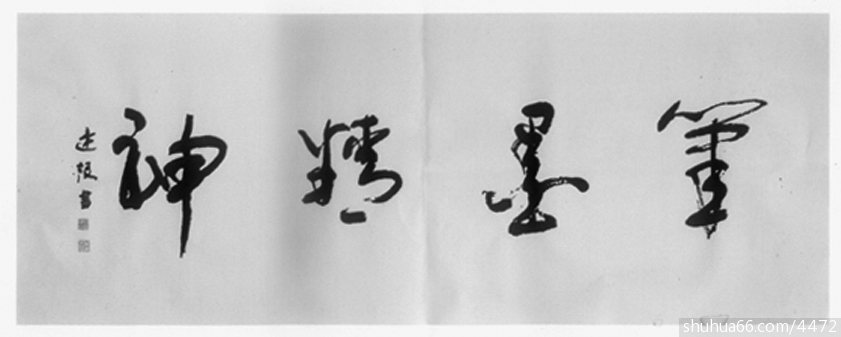 筆墨精神
書
shuhua66.com/4472